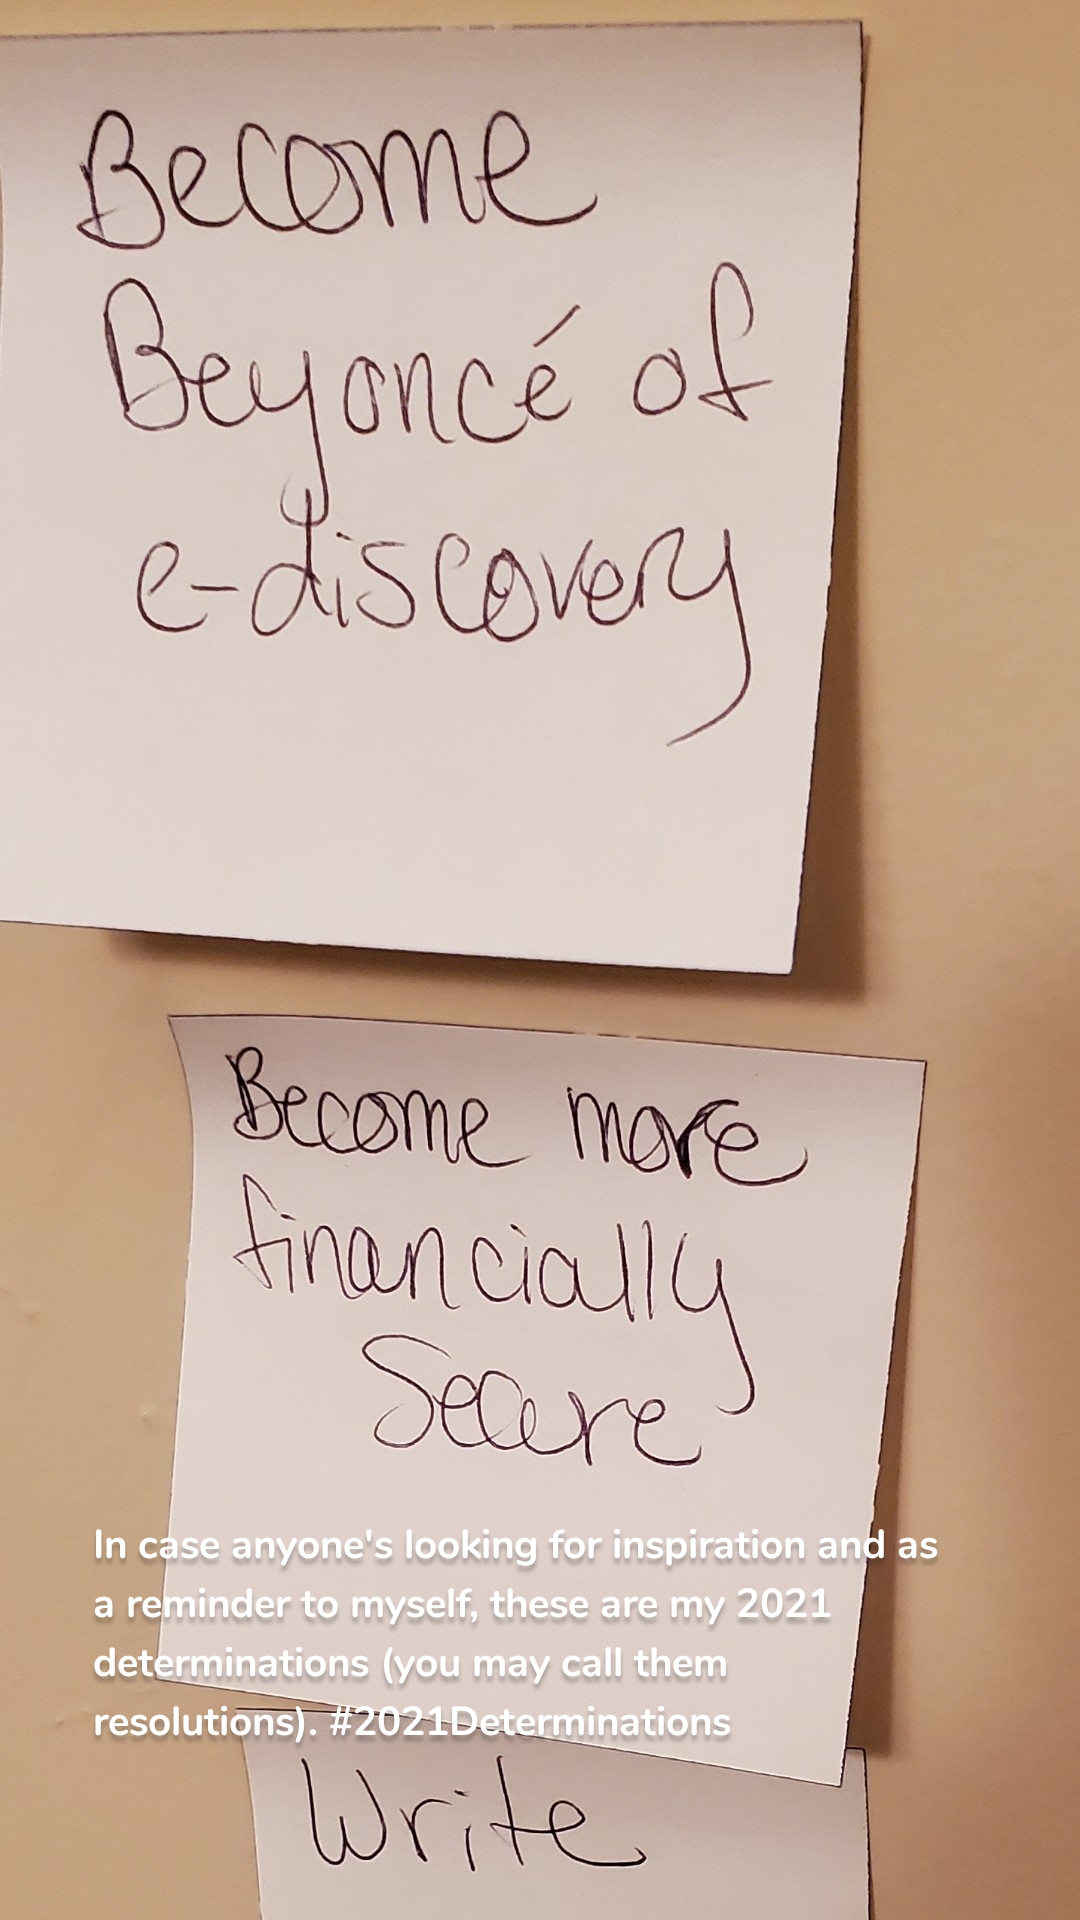 Become
Beyoncé of
e-discovery
Become more
financially
Secure
In case anyone's looking for inspiration and as
a reminder to myself, these are my 2021
determinations (you may call them
resolutions). #2021Determinations
Write